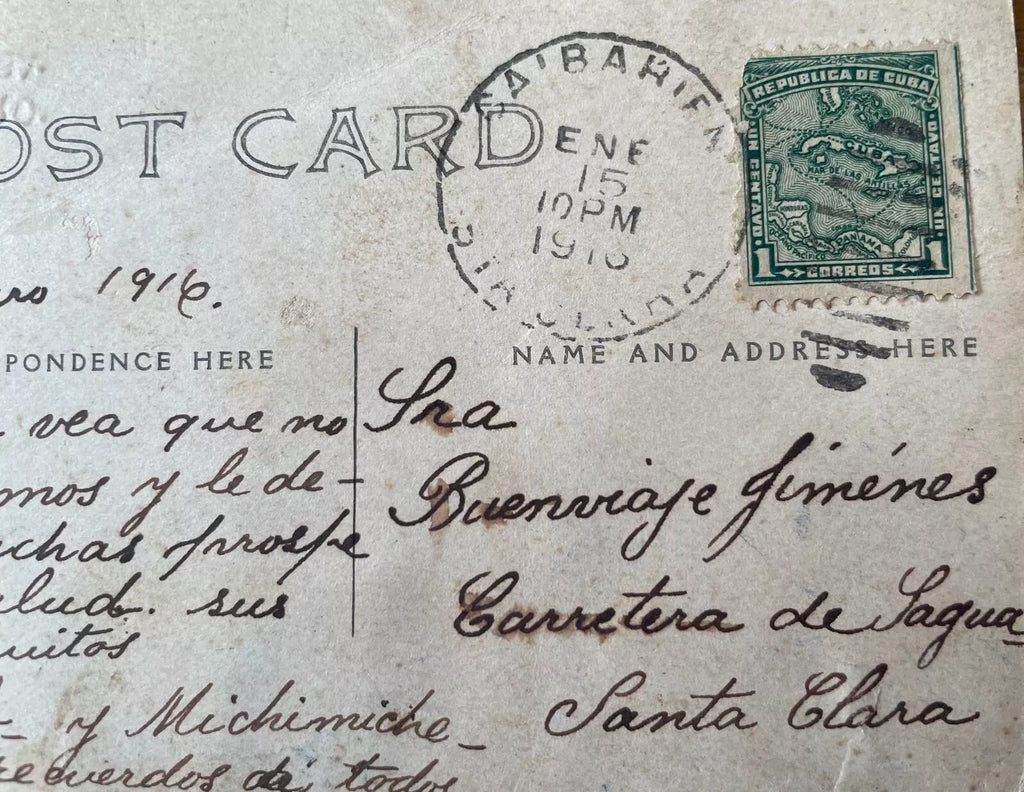 OST CARD
CAIBARIEN
ENE
15
10PM
1916
STA CLARA
REPUBLICA DE CUBA
UN CENTAVO
UN CENTAVO
CUBA
MAR DE LAS ANTILLAS
HONDURAS
PANAMA
1 CORREOS 1
ro 1916.
PONDENCE HERE
NAME AND ADDRESS HERE
vea que no
mos y le de-
chas prospe
lud. sus
uitos
y Michimiche-
recuerdos de todos
Sra
Buenviaje Jiménes
Carretera de Sagua
Santa Clara